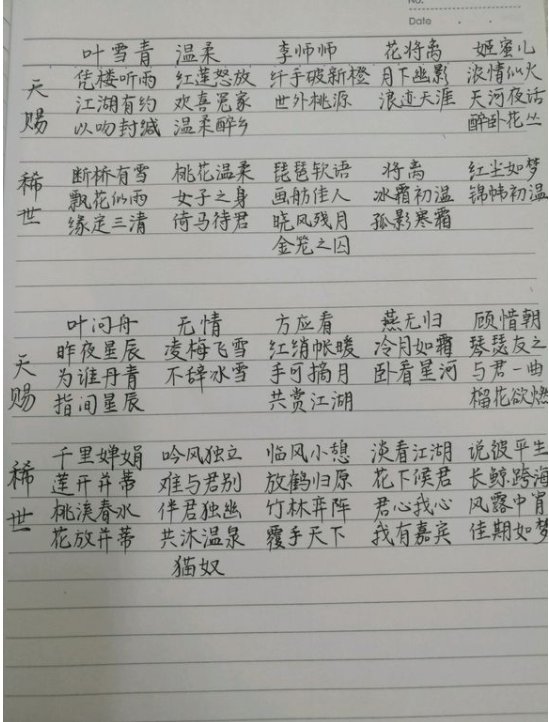 No.
Date
叶雪青 温柔 李师师 花将离 姬蜜儿
天赐
凭楼听雨 红莲怒放 纤手破新橙 月下幽影 浓情似火
江湖有约 欢喜冤家 世外桃源 浪迹天涯 天河夜话
以吻封缄 温柔醉乡 醉卧花丛
稀世
断桥有雪 桃花温柔 琵琶软语 将离 红尘如梦
飘花似雨 女子之身 画舫佳人 冰霜初温 锦帏初温
缘定三清 倚马待君 晓风残月 孤影寒霜
金笼之囚
叶问舟 无情 方应看 燕无归 顾惜朝
天赐
昨夜星辰 凌梅飞雪 红绡帐暖 冷月如霜 琴瑟友之
为谁丹青 不辞冰雪 手可摘月 卧看星河 与君一曲
指间星辰 共赏江湖 榴花欲燃
稀世
千里婵娟 吟风独立 临风小憩 淡看江湖 说彼平生
莲开并蒂 难与君别 放鹤归原 花下候君 长鲸跨海
桃溪春水 伴君独幽 竹林弈阵 君心我心 风露中宵
花放并蒂 共沐温泉 覆手天下 我有嘉宾 佳期如梦
猫奴